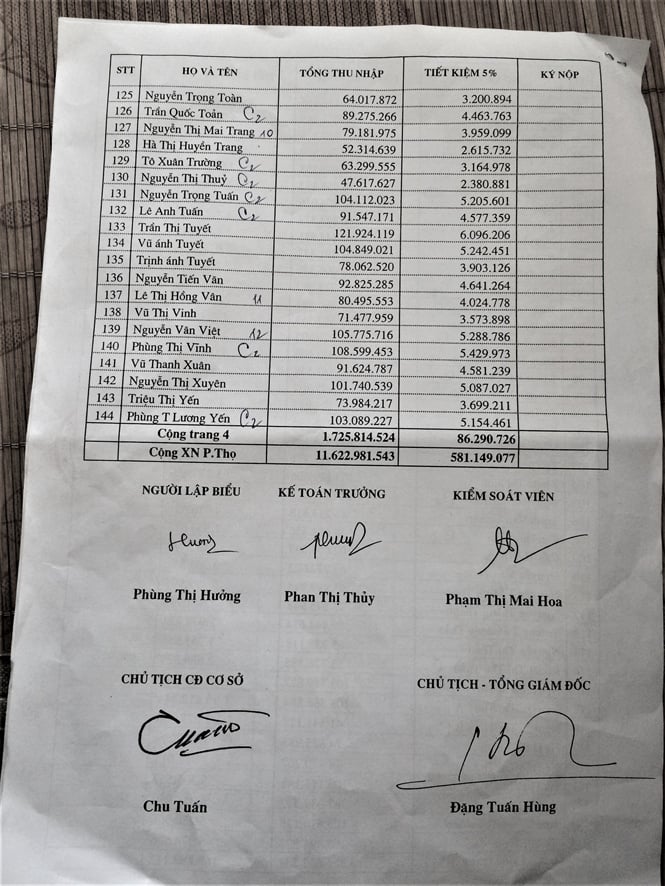 STT HỌ VÀ TÊN TỔNG THU NHẬP TIẾT KIỆM 5% KÝ NỘP
125 Nguyễn Trọng Toàn 64.017.872 3.200.894
126 Trần Quốc Toản C2 89.275.266 4.463.763
127 Nguyễn Thị Mai Trang 10 79.181.975 3.959.099
128 Hà Thị Huyền Trang 52.314.639 2.615.732
129 Tô Xuân Trường C2 63.299.555 3.164.978
130 Nguyễn Thị Thuỷ C2 47.617.627 2.380.881
131 Nguyễn Trọng Tuấn C2 104.112.023 5.205.601
132 Lê Anh Tuấn C2 91.547.171 4.577.359
133 Trần Thị Tuyết 121.924.119 6.096.206
134 Vũ ánh Tuyết 104.849.021 5.242.451
135 Trịnh ánh Tuyết 78.062.520 3.903.126
136 Nguyễn Tiến Văn 92.825.285 4.641.264
137 Lê Thị Hồng Vân 11 80.495.553 4.024.778
138 Vũ Thị Vinh 71.477.959 3.573.898
139 Nguyễn Văn Việt 12 105.775.716 5.288.786
140 Phùng Thị Vĩnh C2 108.599.453 5.429.973
141 Vũ Thanh Xuân 91.624.787 4.581.239
142 Nguyễn Thị Xuyên 101.740.539 5.087.027
143 Triệu Thị Yến 73.984.217 3.699.211
144 Phùng T Lương Yến C2 103.089.227 5.154.461
Cộng trang 4 1.725.814.524 86.290.726
Cộng XN P.Thọ 11.622.981.543 581.149.077
NGƯỜI LẬP BIỂU KẾ TOÁN TRƯỞNG KIỂM SOÁT VIÊN
Phùng Thị Hưởng Phan Thị Thủy Phạm Thị Mai Hoa
CHỦ TỊCH CĐ CƠ SỞ CHỦ TỊCH - TỔNG GIÁM ĐỐC
Chu Tuấn Đặng Tuấn Hùng